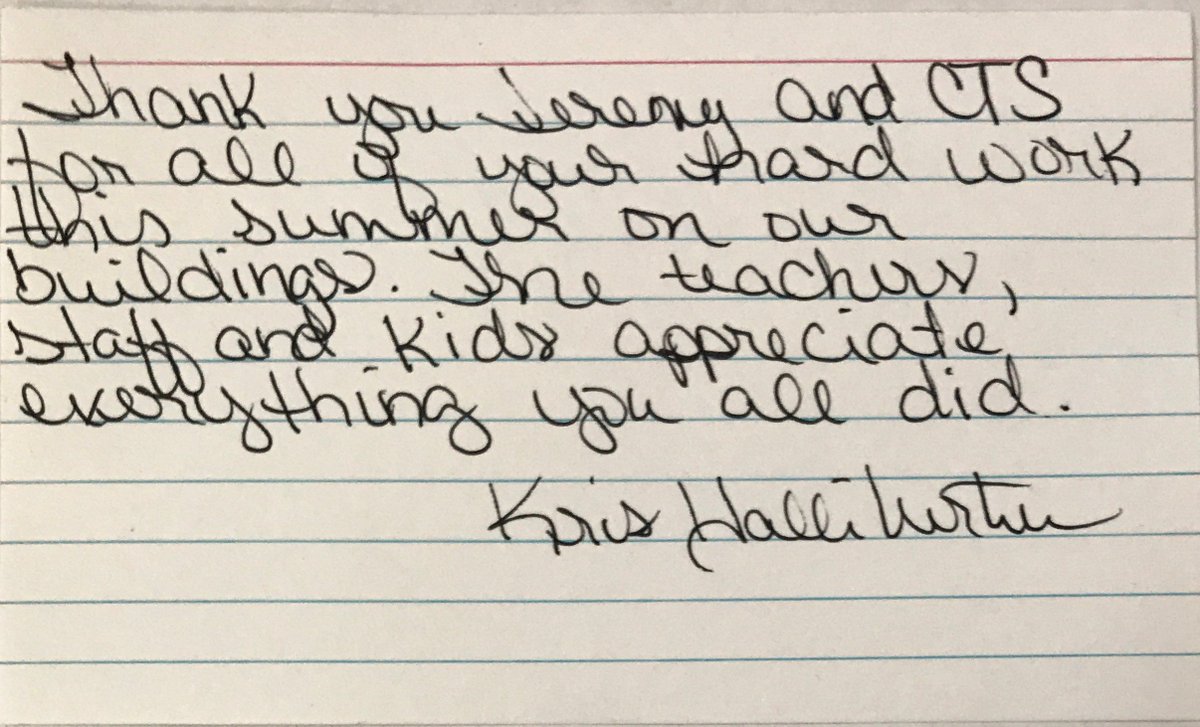 Thank you Jeremy and CTS
for all of your hard work
this summer on our
buildings. The teachers,
staff and kids appreciate
everything you all did.
Kris